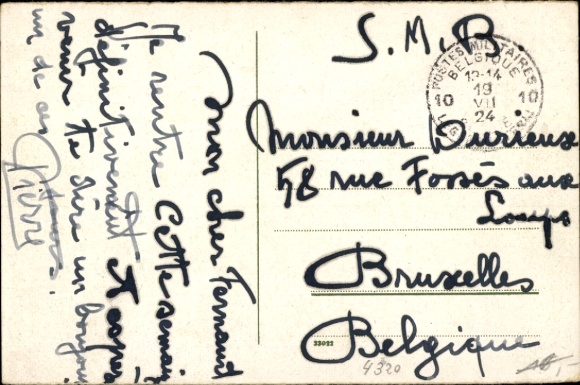 Mon cher Fernand
Je rentre cette semaine
définitivement. J'espère
venir te dire un bonjour
un de ces
Pierre
S. M. B.
POSTES MILITAIRES
BELGIQUE
12-14
19
VII
24
10 10
Monsieur Durieux
58 rue Fossés aux
Loups
Bruxelles
Belgique
33022
4320